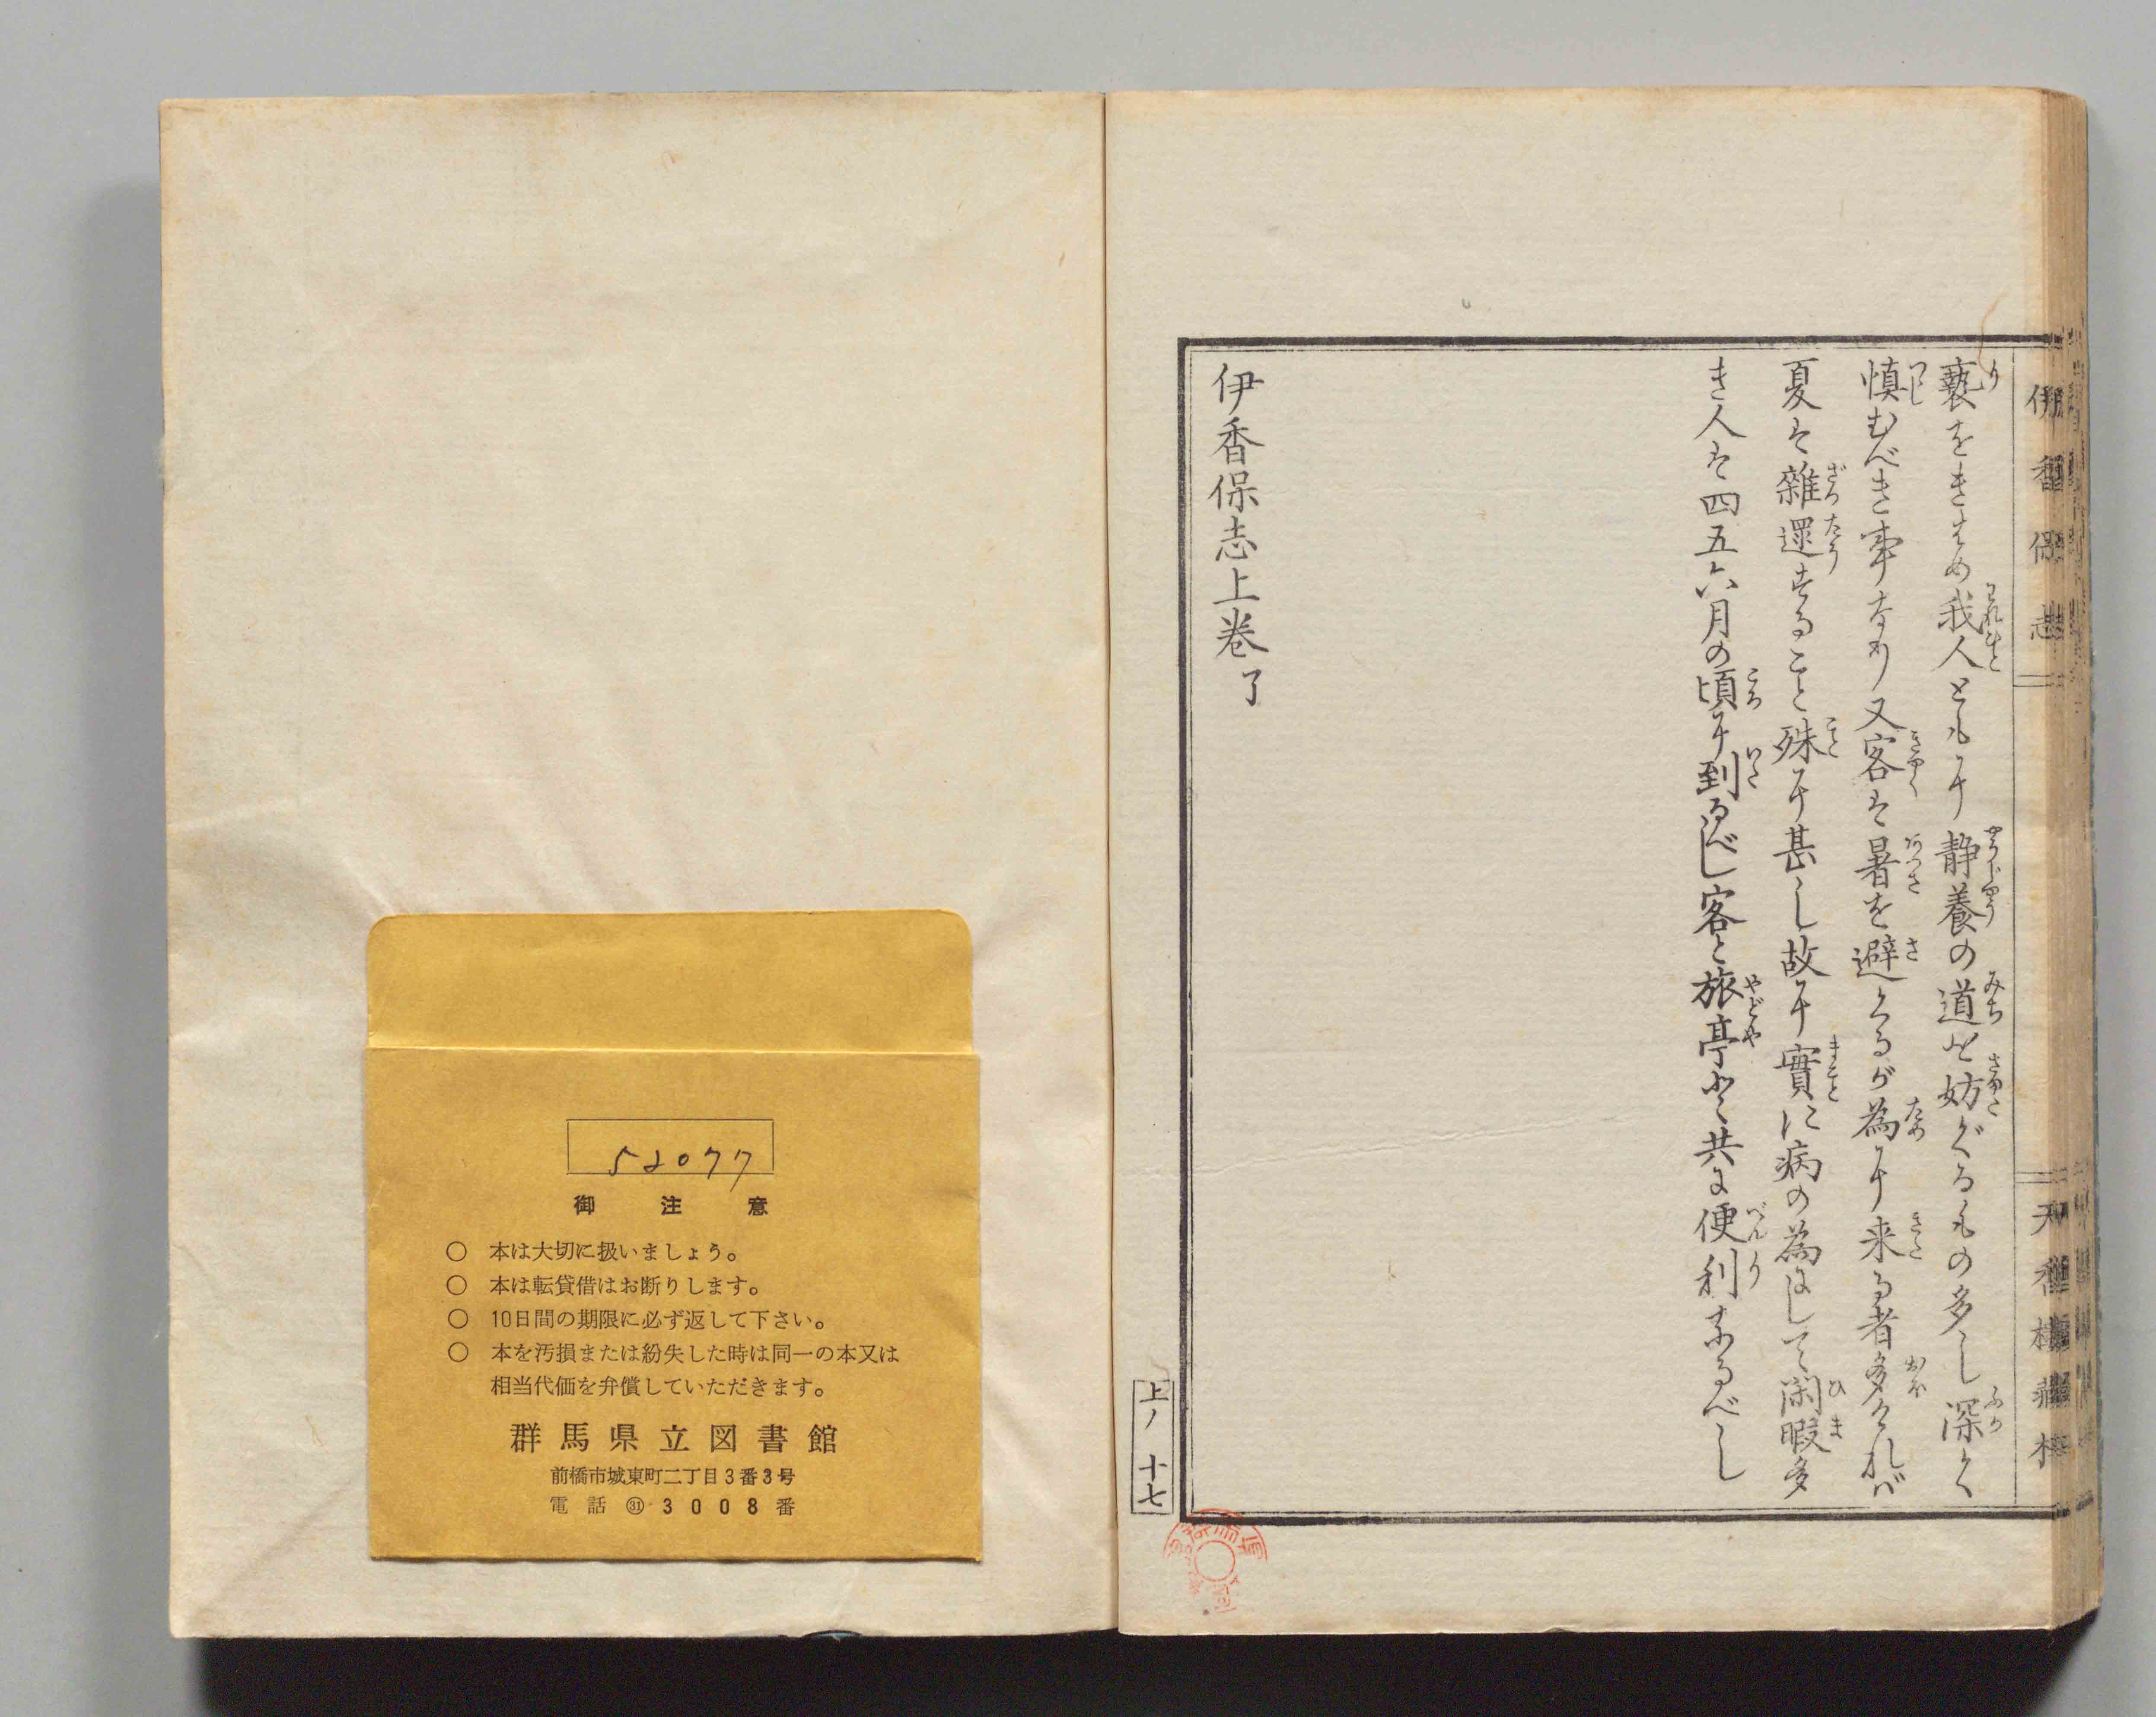 伊香保志
褻をきはめ我人ともに静養の道を妨ぐるもの多し深く
慎むべき事なり又客は暑を避くるが為に来る者多ければ
夏は雑遝すること殊に甚し故に實に病の為にして閑暇多
き人は四五六月の頃に到るべし客と旅亭と共に便利なるべし
伊香保志上巻了
上ノ十七
52077
御注意
○ 本は大切に扱いましょう。
○ 本は転貸借はお断りします。
○ 10日間の期限に必ず返して下さい。
○ 本を汚損または紛失した時は同一の本又は
相当代価を弁償していただきます。
群馬県立図書館
前橋市城東町二丁目3番3号
電話 ㉛ 3008番